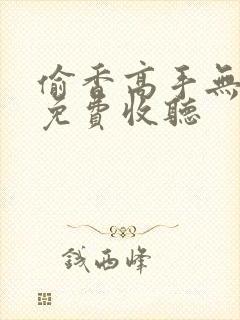 偷香高手無
免費收聽
錢西峰